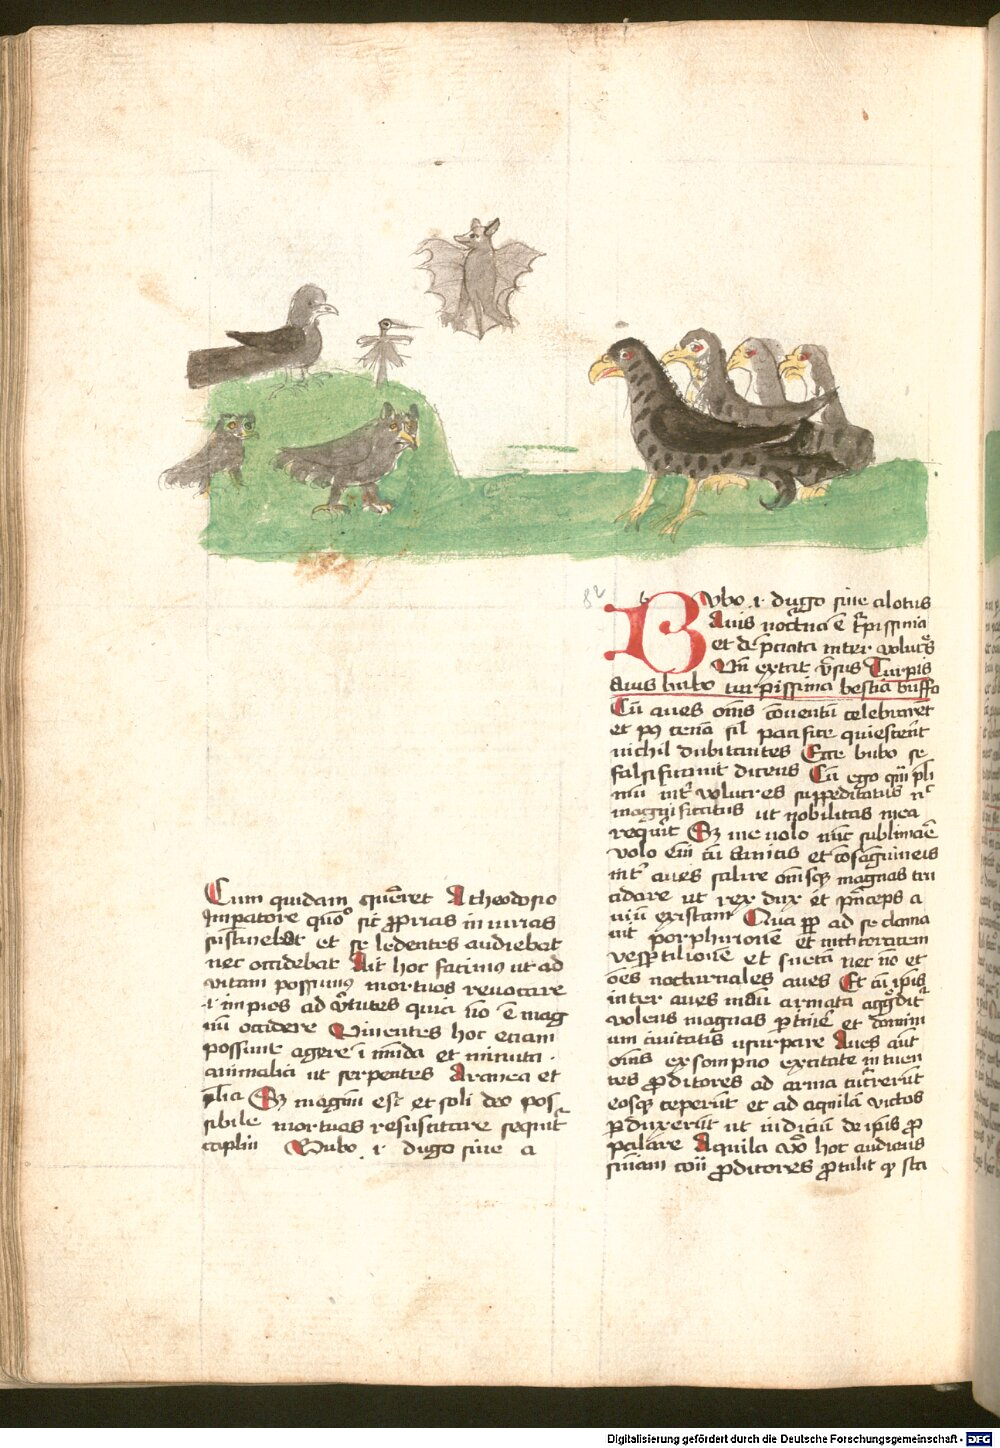 Cum quidam quereret A theodosio
Imperatore quo sic proprias iniurias
sustinebat et se ledentes audiebat
nec occidebat Ait hoc facimus ut ad
vitam possumus mortuos revocare
.i. impios ad virtutes quia no e mag
nu occidere Viventes hoc etiam
possunt agere i munda et minuta
animalia ut serpentes Aranea et
alia Sz magnu est et soli deo pos
sibile mortuos resuscitare sequitur
caplm Bubo .i. dugo siue a
82
Bubo .i. dugo siue alotus
Auis nocturna e turpissima
et depravata inter volucres
Un extat versus Turpis
Auis bubo turpissima bestia buffo
Cu aues omnes conuentu celebrarent
et post cenam simul pacifice quiescerent
nichil dubitantes Ecce bubo se
falsificauit dicens Cu ego
inter volucres suppeditatus
magnificatus ut nobilitas mea
requirit Sz me volo nunc sublimare
volo eni cu amicis et cosanguineis
inter aues salire omnisque magnas tru
cidare ut rex dux et princeps a
uiu existam Qua propter ad se clama
uit porphirione et nicticoracem
vespertilione et
oes nocturnales aues Et cu ipsis
inter aues manu armata aggreditur
volens magnas perimere et domini
um ciuitatis usurpare Aues aut
omnes ex sompno excitate intuen
tes proditores ad arma cucurrerunt
eosque ceperunt et ad aquila victos
perduxerunt ut iudiciu de ipsis pro
palare Aquila vero hoc audiens
sniam contra proditores protulit
Digitalisierung gefördert durch die Deutsche Forschungsgemeinschaft - DFG